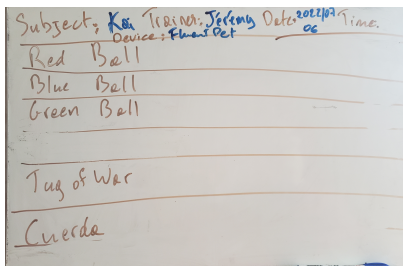 Subject: Kai Trainer: Jeremy Date: 2022/07 Time:
Device: Fluent Pet 06
Red Ball
Blue Ball
Green Ball
Tug of War
Cuerda